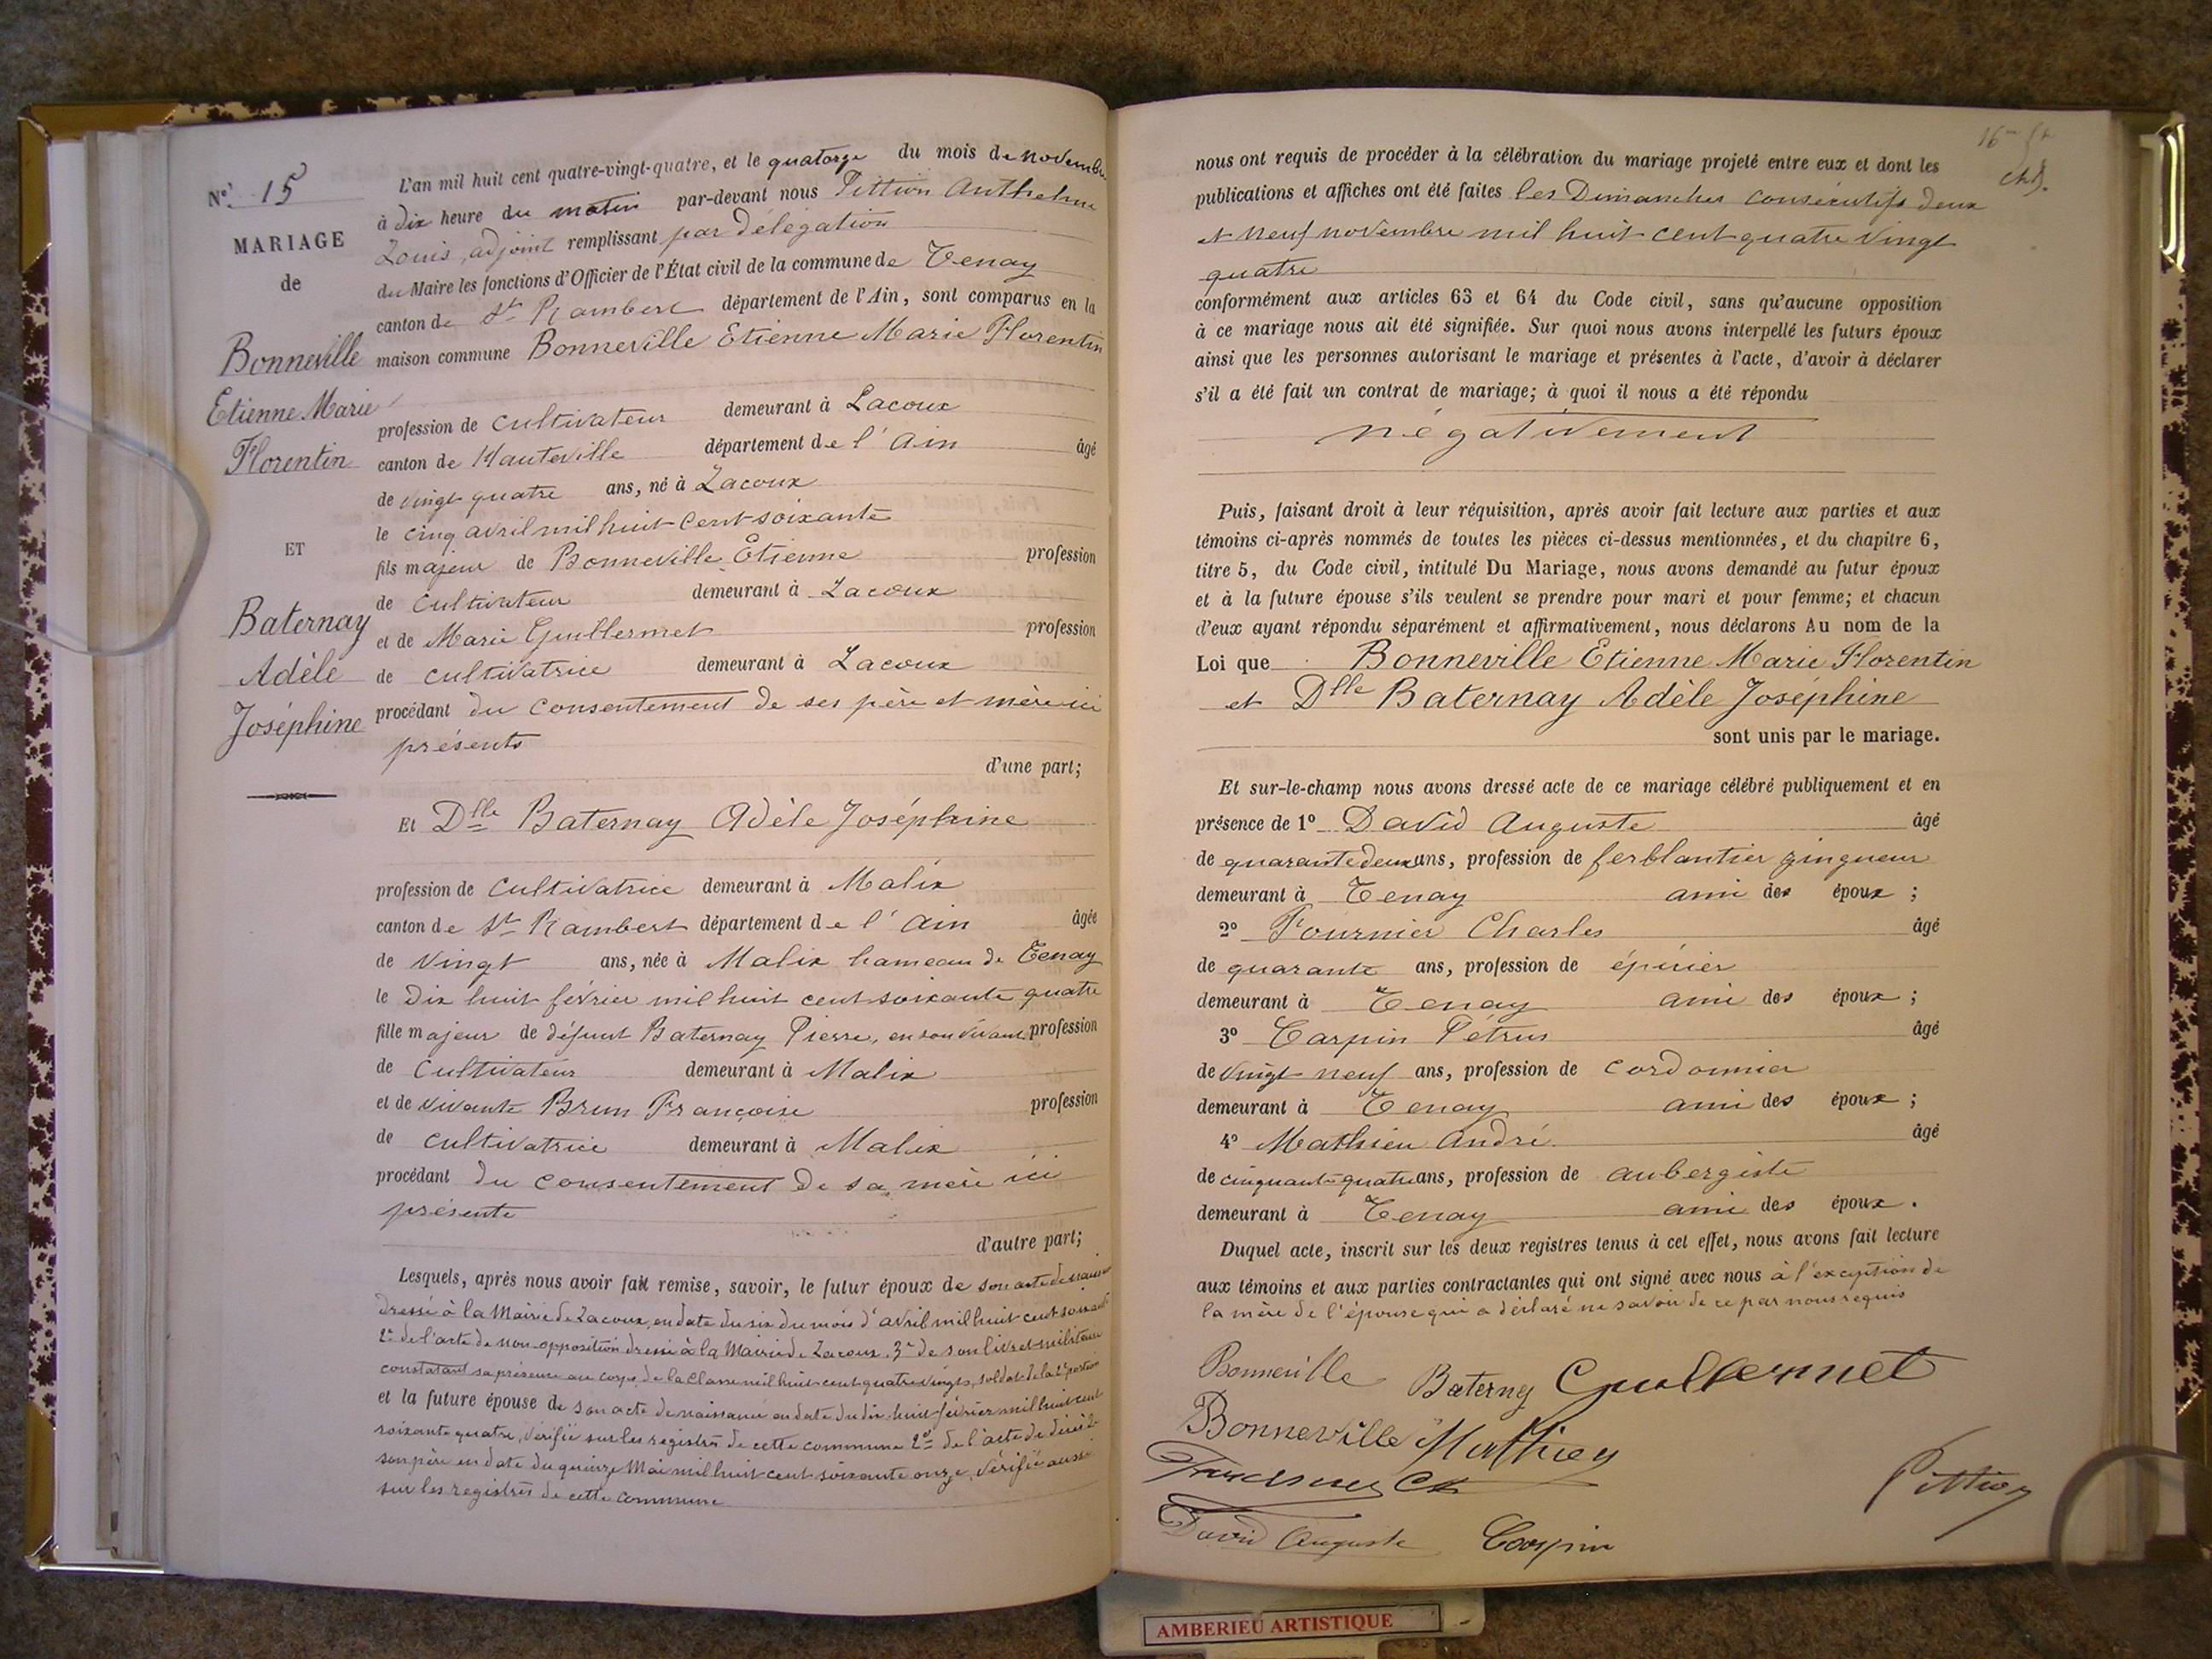 N° 15
MARIAGE
de
Bonneville
Etienne Marie
Florentin
ET
Baternay
Adèle
Joséphine
L'an mil huit cent quatre-vingt-quatre, et le quatorze du mois de novembre
à dix heure du matin par-devant nous Pittion Anthelme
Louis, adjoint remplissant par délégation
du Maire les fonctions d'Officier de l'État civil de la commune de Tenay
canton de St Rambert département de l'Ain, sont comparus en la
maison commune Bonneville Etienne Marie Florentin
profession de cultivateur demeurant à Lacoux
canton de Hauteville département de l'Ain âgé
de vingt quatre ans, né à Lacoux
le cinq avril mil huit cent soixante
fils majeur de Bonneville Etienne profession
de cultivateur demeurant à Lacoux
et de Marie Guillermet profession
de cultivatrice demeurant à Lacoux
procédant du consentement de ses père et mère ici
présents
d'une part;
Et Dlle Baternay Adèle Joséphine
profession de cultivatrice demeurant à Malix
canton de St Rambert département de l'Ain âgée
de vingt ans, née à Malix hameau de Tenay
le dix huit février mil huit cent soixante quatre
fille majeur de défunt Baternay Pierre, en son vivant profession
de cultivateur demeurant à Malix
et de vivante Brun Françoise profession
de cultivatrice demeurant à Malix
procédant du consentement de sa mère ici
présente
d'autre part;
Lesquels, après nous avoir fait remise, savoir, le futur époux de son acte de naissance
dressé à la Mairie de Lacoux, en date du six du mois d'avril mil huit cent soixante
2° de l'acte de non-opposition dressé à la Mairie de Lacoux. 3° de son livret militaire
constatant sa présence au corps de la classe mil huit cent quatre vingts, soldat de la 2e portion
et la future épouse de son acte de naissance en date du dix-huit février mil huit cent
soixante quatre, vérifié sur les registres de cette commune 2° de l'acte de décès de
son père en date du quinze Mai mil huit cent soixante onze, vérifié aussi
sur les registres de cette commune
nous ont requis de procéder à la célébration du mariage projeté entre eux et dont les
publications et affiches ont été faites les Dimanches consécutifs deux
et neuf novembre mil huit cent quatre vingt
quatre
conformément aux articles 63 et 64 du Code civil, sans qu'aucune opposition
à ce mariage nous ait été signifiée. Sur quoi nous avons interpellé les futurs époux
ainsi que les personnes autorisant le mariage et présentes à l'acte, d'avoir à déclarer
s'il a été fait un contrat de mariage; à quoi il nous a été répondu
négativement
Puis, faisant droit à leur réquisition, après avoir fait lecture aux parties et aux
témoins ci-après nommés de toutes les pièces ci-dessus mentionnées, et du chapitre 6,
titre 5, du Code civil, intitulé Du Mariage, nous avons demandé au futur époux
et à la future épouse s'ils veulent se prendre pour mari et pour femme; et chacun
d'eux ayant répondu séparément et affirmativement, nous déclarons Au nom de la
Loi que Bonneville Etienne Marie Florentin
et Dlle Baternay Adèle Joséphine
sont unis par le mariage.
Et sur-le-champ nous avons dressé acte de ce mariage célébré publiquement et en
présence de 1° David Auguste âgé
de quarante deux ans, profession de ferblantier zingueur
demeurant à Tenay ami des époux ;
2° Fournier Charles âgé
de quarante ans, profession de épicier
demeurant à Tenay ami des époux ;
3° Carpin Pétrus âgé
de vingt neuf ans, profession de cordonnier
demeurant à Tenay ami des époux ;
4° Mathieu André âgé
de cinquante quatre ans, profession de aubergiste
demeurant à Tenay ami des époux .
Duquel acte, inscrit sur les deux registres tenus à cet effet, nous avons fait lecture
aux témoins et aux parties contractantes qui ont signé avec nous à l'exception de
la mère de l'épouse qui a déclaré ne savoir de ce par nous requis
Bonneville Baterny Guillermet
Bonneville Mathiey
David Auguste Carpin
Pittion
AMBERIEU ARTISTIQUE